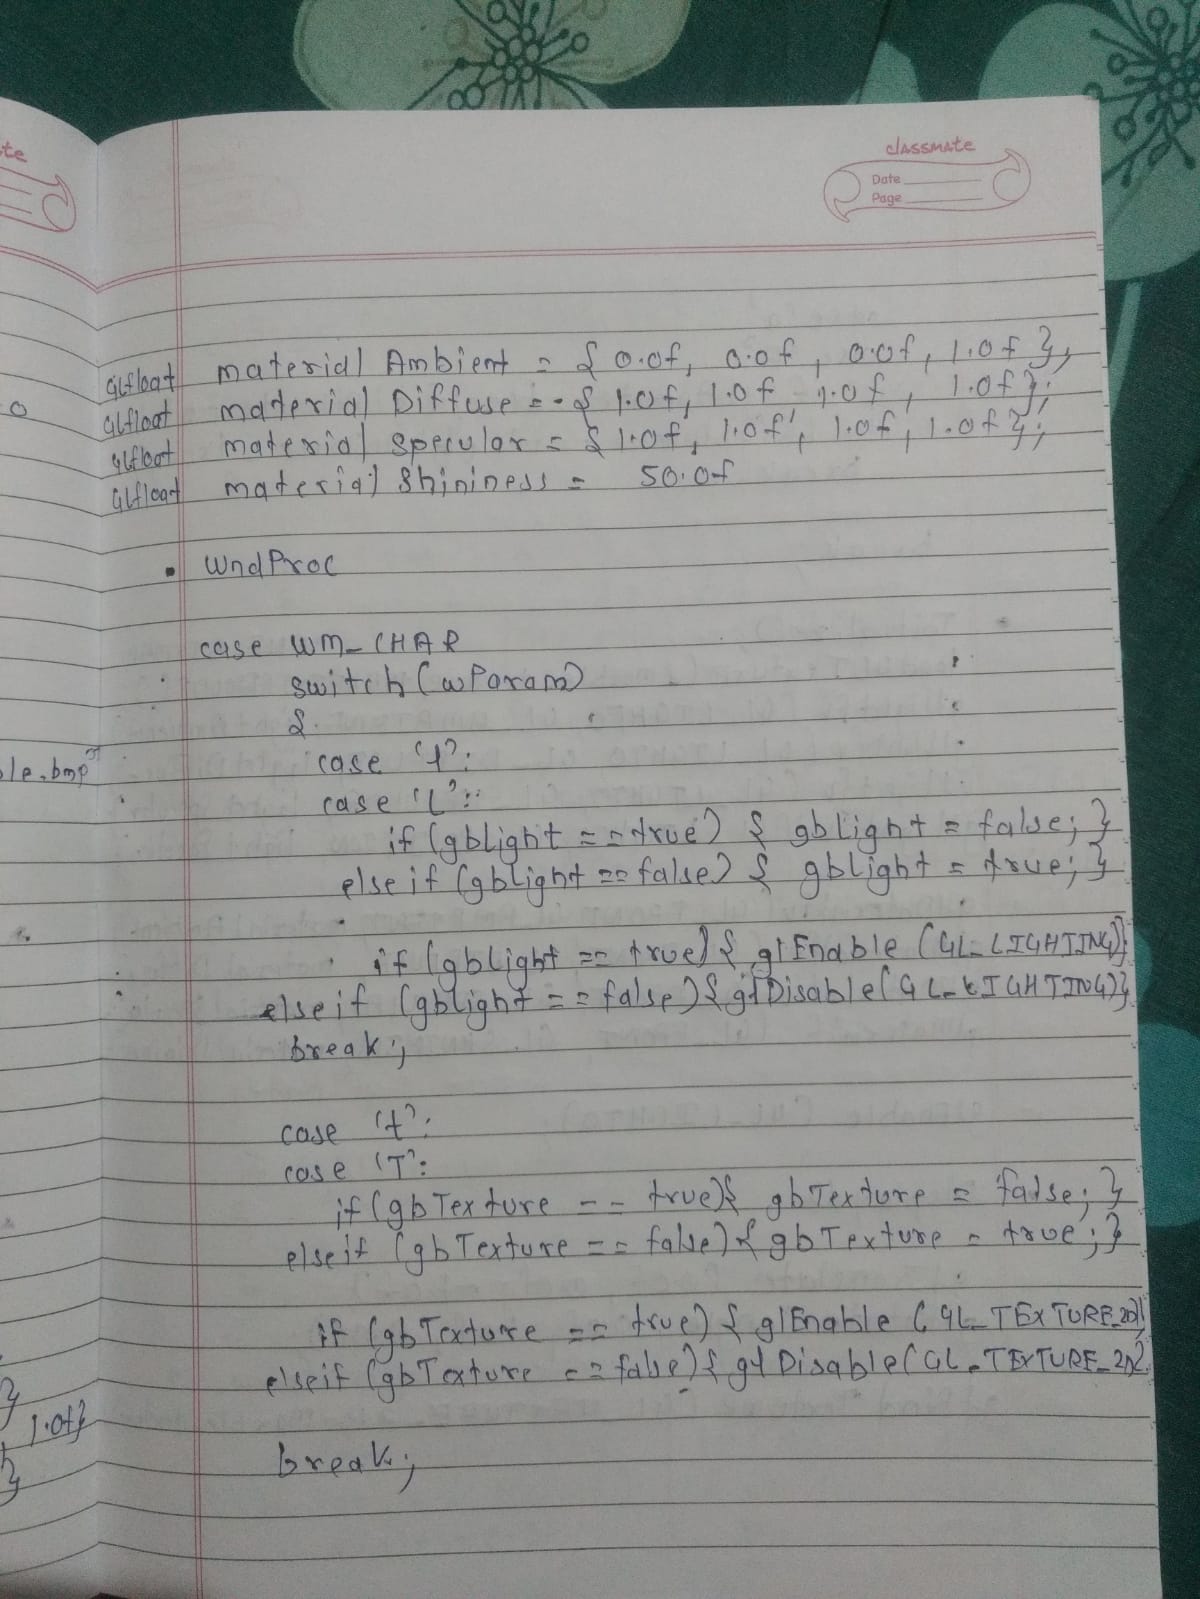 te
classmate
Date
Page
GLfloat material Ambient = { 0.0f, 0.0f, 0.0f, 1.0f };
GLfloat material Diffuse = { 1.0f, 1.0f 1.0f, 1.0f};
GLfloat material specular = { 1.0f, 1.0f, 1.0f, 1.0f };
GLfloat material Shininess = 50.0f
• WndProc
case WM_CHAR
switch (wParam)
{
case 'l':
case 'L':
if (gbLight == true) { gbLight = false; }
else if (gbLight == false) { gbLight = true; }
if (gbLight == true) { glEnable (GL_LIGHTING)}
else if (gbLight == false) { glDisable(GL_LIGHTING)}
break;
case 't':
case 'T':
if (gbTexture == true){ gbTexture = false; }
else if (gbTexture == false) { gbTexture = true; }
if (gbTexture == true) { glEnable (GL_TEXTURE_2D)
else if (gbTexture == false) { glDisable(GL_TEXTURE_2D)
break;
le.bmp"
}
1.0f}
}